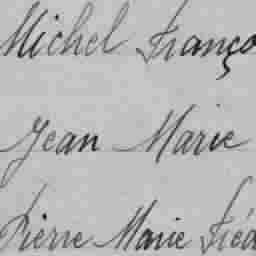 Michel Franço
Jean Marie
Pierre Marie Fréd